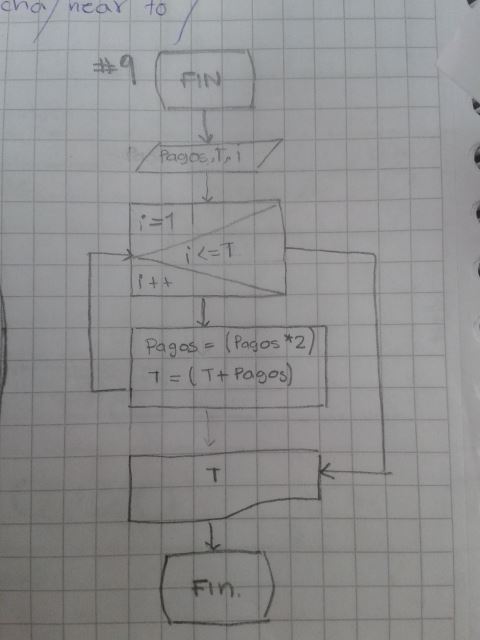 cha/near to /
#9
FIN
Pagos, T, i
i=1
i<=T
i++
Pagos = (Pagos*2)
T = (T+Pagos)
T
Fin.